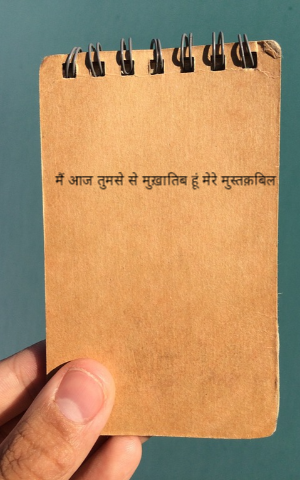 मैं आज तुमसे से मुख़ातिब हूं मेरे मुस्तक़बिल